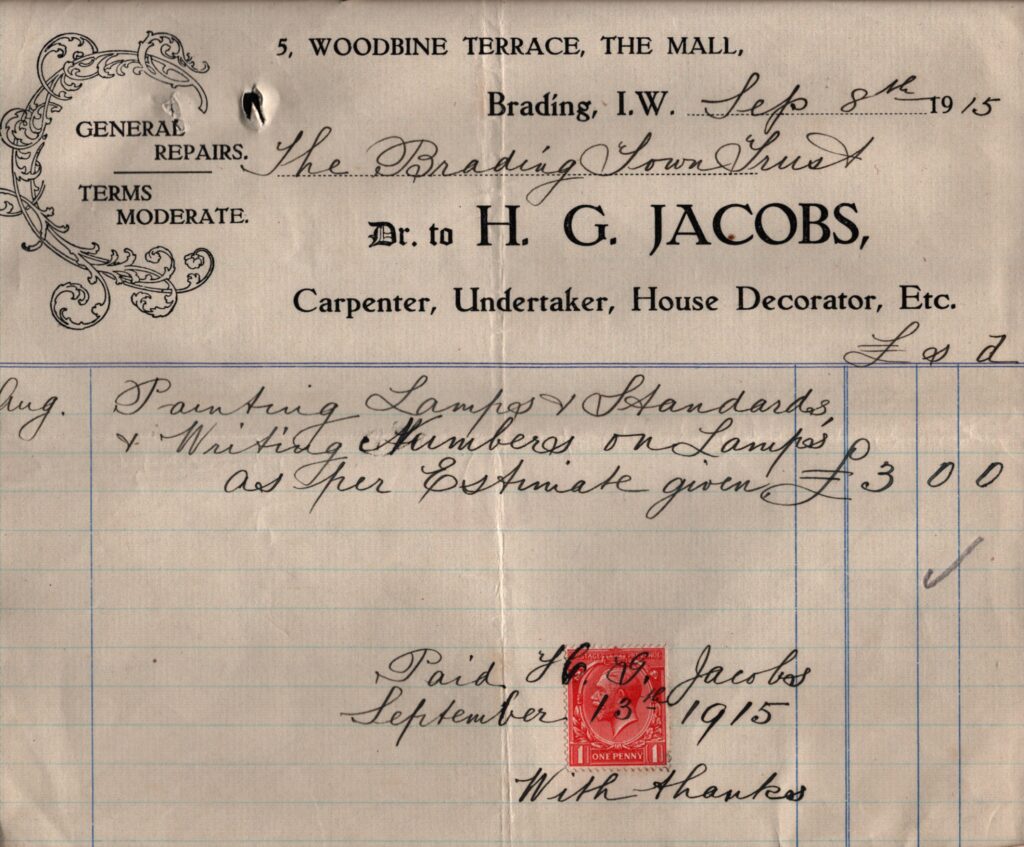 5, WOODBINE TERRACE, THE MALL,
Brading, I.W. Sep 8th 1915
GENERAL
REPAIRS.
The Brading Town Trust
TERMS
MODERATE.
Dr. to H. G. JACOBS,
Carpenter, Undertaker, House Decorator, Etc.
£ s d
Aug. Painting Lamps & Standards,
& Writing Numbers on Lamps
as per Estimate given, £3 0 0
Paid H. G. Jacobs
September 13th 1915
1 ONE PENNY 1
With thanks